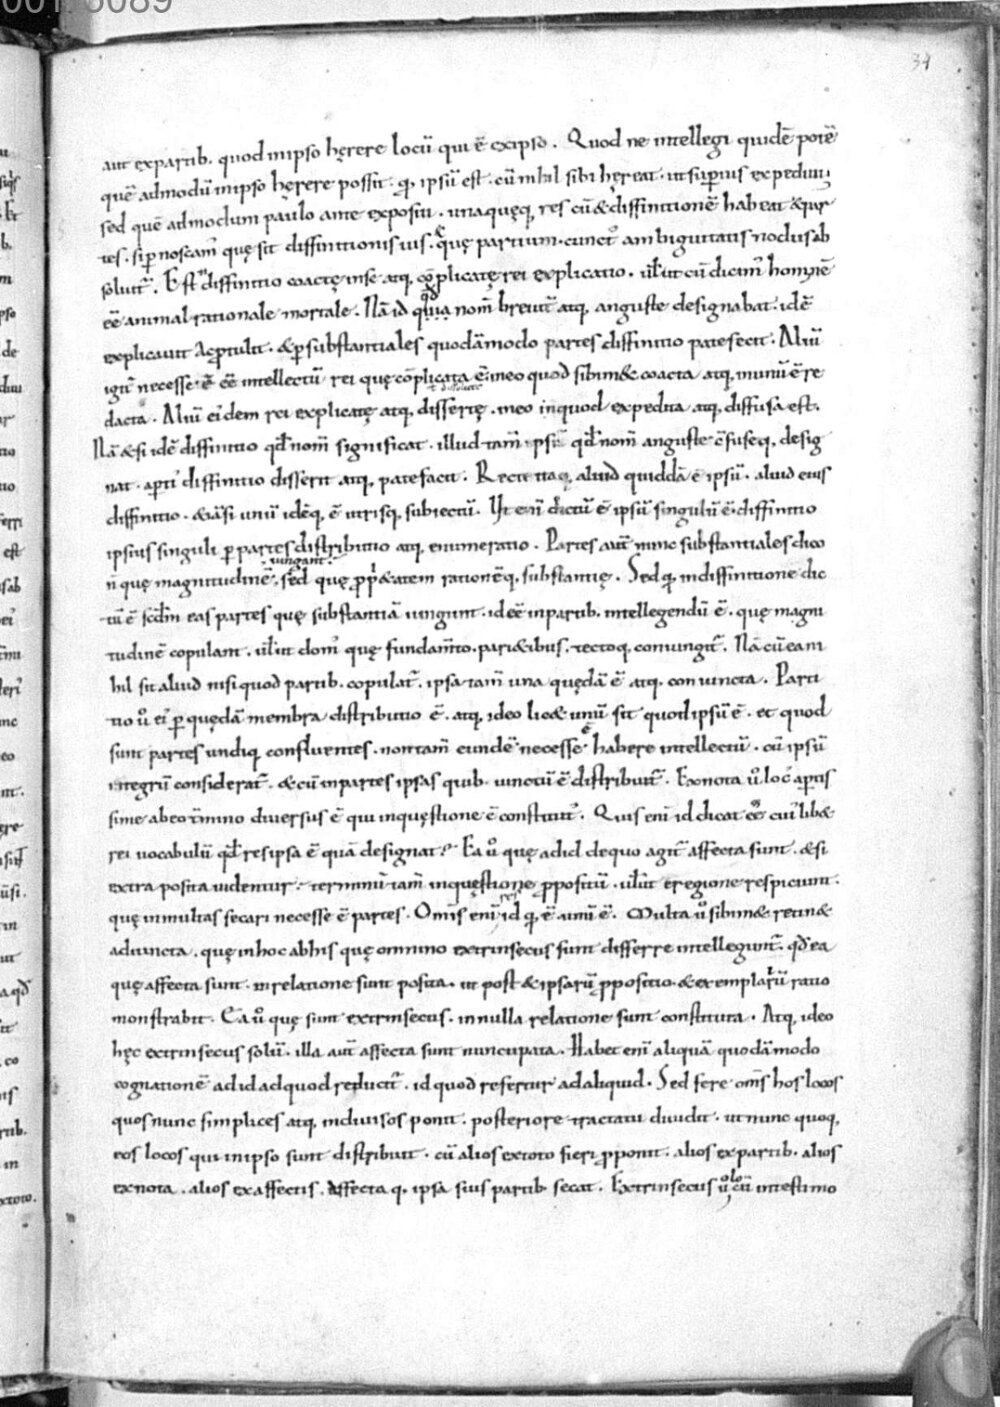 34
aut ex partib. quod in ipso hęrere locũ qui ẽ ex ipso. Quod ne intellegi quidẽ potẽ
quẽ admodũ in ipso hęrere possit. qͥ ipsũ est. cũ nihil sibi hęreat. ut superius expediuı
sed quẽ admodum paulo ante exposui. una quęq; res cũ & diffinitionẽ habeat & par
tes. si p̱noscam᾽ quę sit diffinitionis uis. quę partium. cunct᾽ ambiguitatis nodus ab
soluit᷑. Est diffinitio coactę in se atq; cõplicatę rei explicatio. ułut cũ dicim᾽ hominẽ
eẽ animal rationale mortale. Nã id quod nom̃ breuit̃ atq; anguste designabat. idẽ
explicauit ac p̱tulit. & p̱ substantiales quodãmodo partes diffinitio patefecit. Aliũ
igit᷑ necesse ẽ eẽ intellectũ rei quę cõplicata ẽ. in eo quod sibimet coacta atq; in unũ ẽ re
dacta. Aliũ ei᾽dem rei explicatę atq; dissertę. in eo inquod expedita atq; diffusa est.
Nã & si idẽ diffinitio qđ nom̃ significat. illud tam̃ ipsũ qđ nom̃ anguste cõfuseq; desig
nat. apti᾽ diffinitio disserit atq; patefacit. Recte itaq; aliud quiddã ẽ ipsũ. aliud eius
diffinitio. & iã si unũ idẽq; ẽ utrisq; subiectũ. Ut enĩ dictũ ẽ ipsũ singulũ ẽ. diffinitio
ipsius singuli p̱ partes distributio atq; enumeratio. Partes aut̃ nunc substantiales dico
ñ quę magnitudinẽ. iungant. sed quę p̱p̱&atem rationẽq; substantię. Sed qͥ in diffinitione dic
tũ ẽ scđm eas partes quę substantiã iungunt. id eẽ in partib. intellegendũ ẽ. quę magni
tudinẽ copulant. ułut dom᾽ quę fundam̃to. pari&ibus. tectoq; coniungit᷑. Nã cũ ea ni
hil sit aliud nisi quod partib. copulat᷑. ipsa tam̃ una quędã ẽ atq; coniuncta. Parti
tio u᷒ ei᾽ p̱ quędã membra distributio ẽ. atq; ideo lic& unũ sit quod ipsũ ẽ. et quod
sunt partes undiq; confluentes. non tam̃ eundẽ necesse ẽ habere intellectũ. cũ ipsũ
integrũ considerat᷑. & cũ in partes ipsas quib. uinctũ ẽ distribuit᷑. Ex nota u᷒ loc᾽ aptis
sime ab eo t̃mino diuersus ẽ qui in quęstione ẽ constitut᾽. Quis enĩ id dicat eẽ cui᾽lib&
rei uocabulũ qđ res ipsa ẽ quã designat? Ea u᷒ quę ad id de quo agit᷑ affecta sunt. & si
extra posita uidentur. terminũ tam̃ in quęstione p̱positũ. ułut e regione respiciunt.
quę in multas secari necesse ẽ partes. Om̃is enĩ res id qͥ ẽ unũ ẽ. Multa u᷒ sibimet retin&
adiuncta. quę in hoc ab his quę omnino extrinsecus sunt differre intellegunt᷑. qđ ea
quę affecta sunt. in relatione sunt posita. ut post & ipsarũ p̱positio. & exemplarũ ratio
monstrabit. Ea u᷒ quę sunt extrinsecus. in nulla relatione sunt constituta. Atq; ideo
hęc extrinsecus solũ. illa aut̃ affecta sunt nuncupata. Habet enĩ aliquã quodãmodo
cognationẽ ad id ad quod reducit᷑. id quod refertur ad aliquid. Sed fere om̃s hos locos
quos nunc simplices atq; indiuisos ponit. posteriore tractatu diuidit. ut nunc quoq;
eos locos qui in ipso sunt distribuit. cũ alios ex toto fieri p̱ponit. alios ex partib. alios
ex nota. alios ex affectis. Affecta q; ipsa suis partib. secat. Extrinsecus u᷒ locũ intestimo